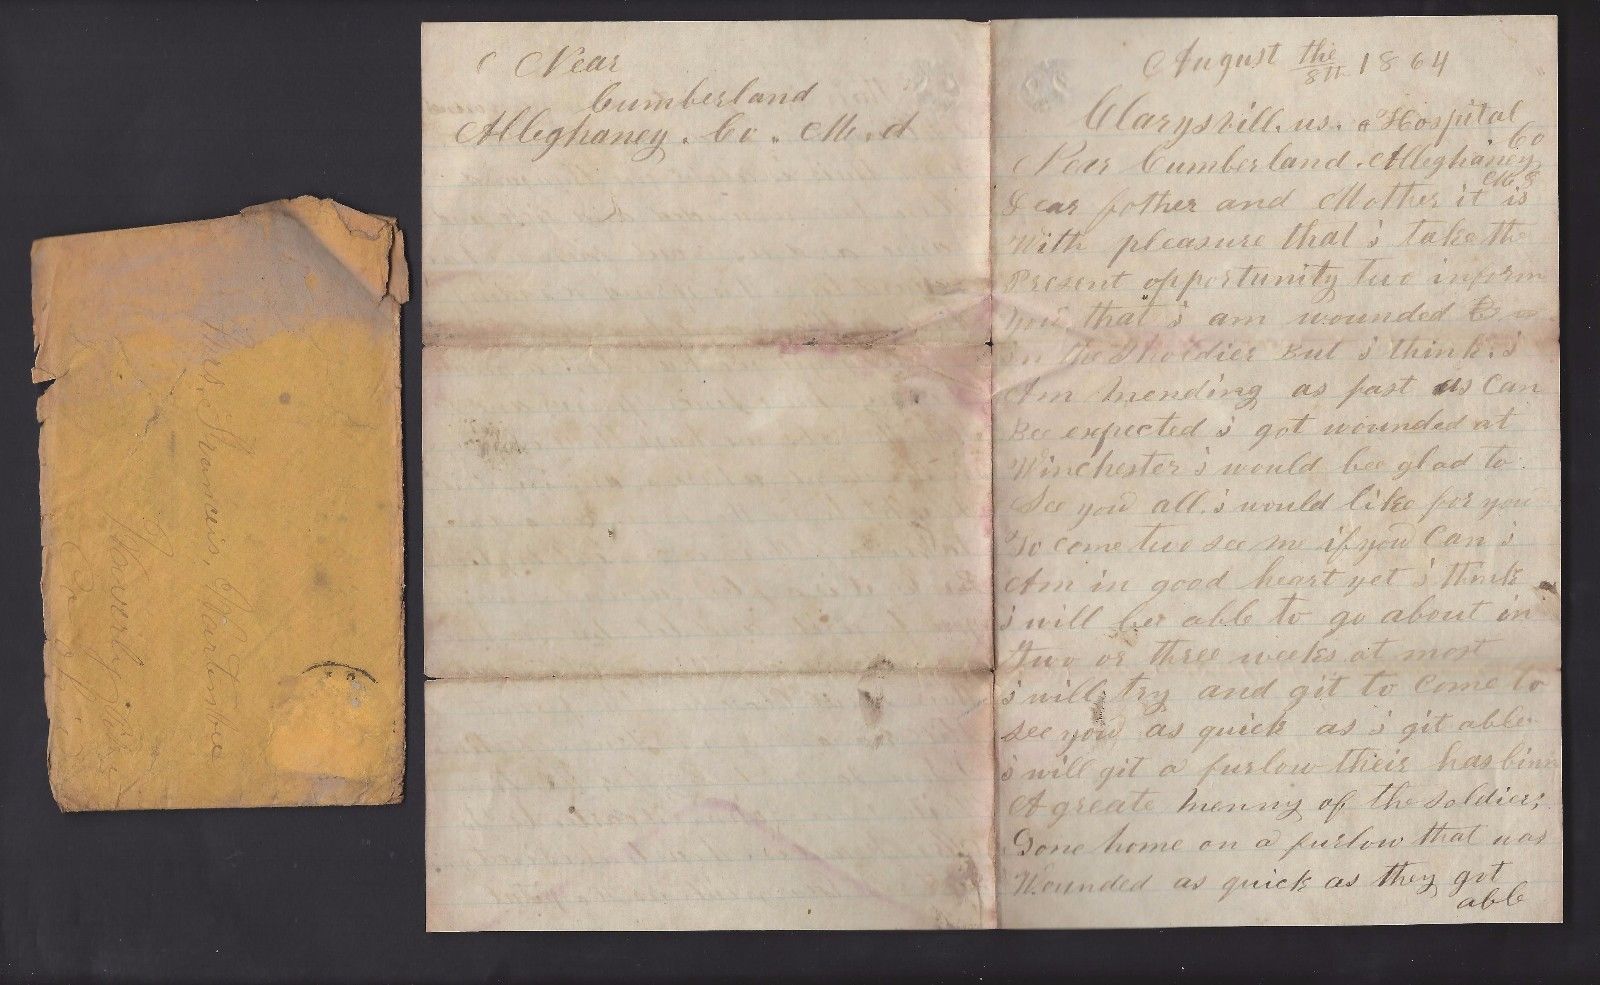 Mrs. Francis,
Waverly
Near
Cumberland
Alleghaney. Co. M.d
August the 8th 1864
Clarysvill. us. Hospital
Near Cumberland. Alleghaney Co
Md
Dear father and Mother it is
With pleasure that i take the
Present opportunity two inform
you that i am wounded
in the Sholdier But i think. i
Am mending as fast as Can
Bee expected i got wounded at
Winchester i would bee glad to
See you all. i would like for you
To come two see me if you Can i
Am in good heart yet i think
i will bee able to go about in
Two or three weeks at most
i will try and git to Come to
see you as quick as i git able
i will git a furlow their has binn
A greate menny of the soldiers
Gone home on a furlow that was
Wounded as quick as they got
able